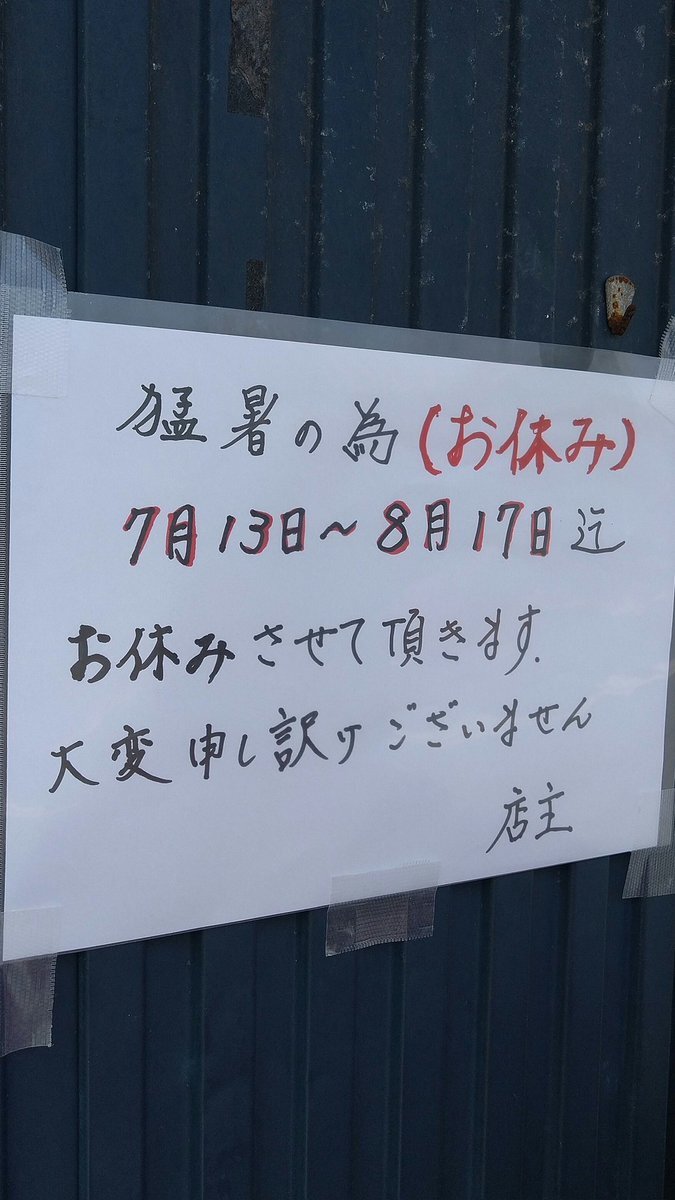 猛暑の為(お休み)
7月13日～8月17日迄
お休みさせて頂きます.
大変申し訳けございません
店主